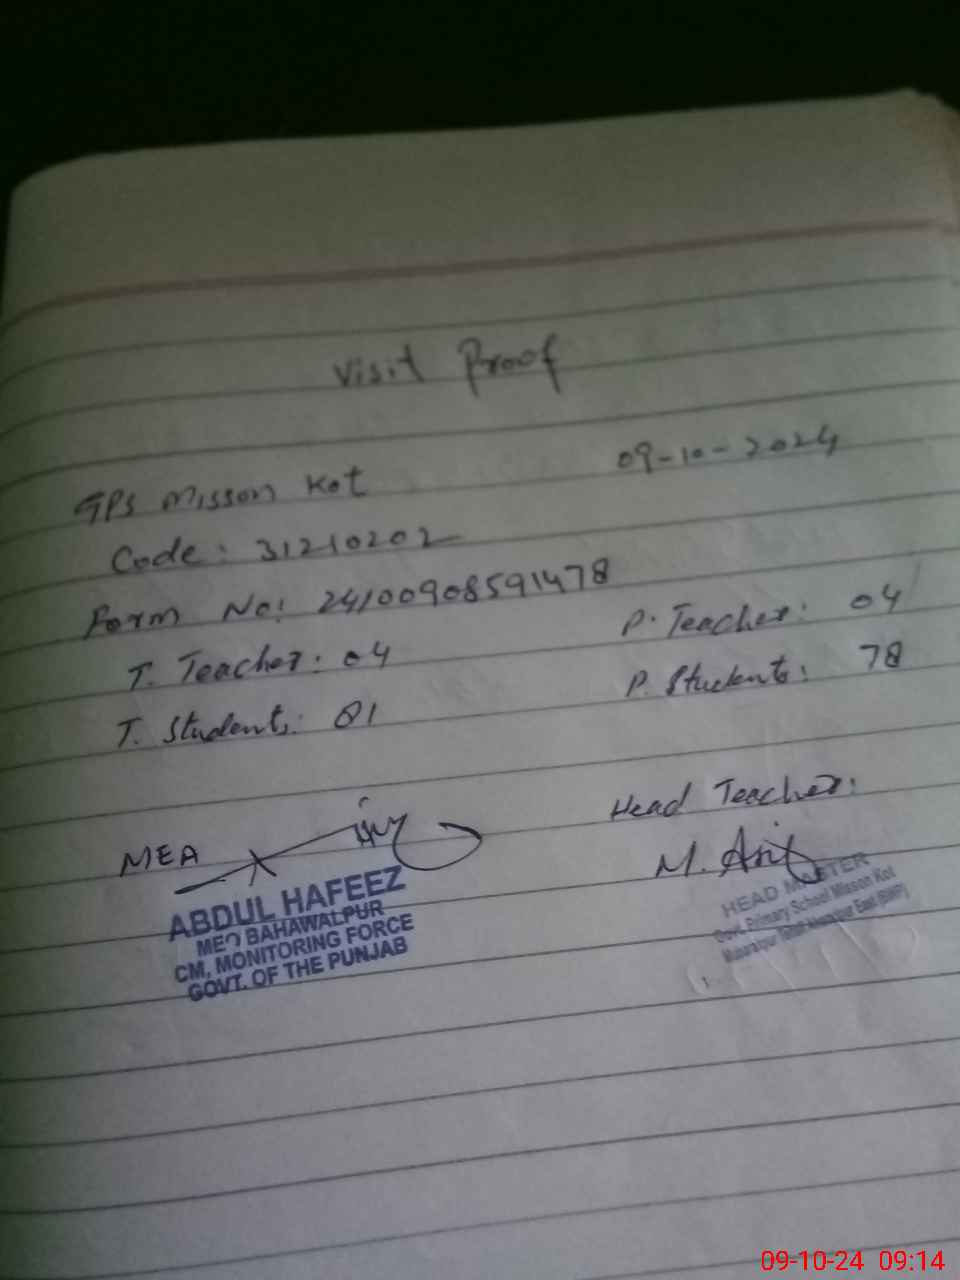 Visit Proof
GPS Misson Kot 09-10-2024
Code: 31210202
Form No: 24100908591478
T. Teacher: 04 P. Teacher: 04
T. Students: 81 P. Students: 78
MEA Head Teacher:
M. Arif
ABDUL HAFEEZ
MEO BAHAWALPUR
CM, MONITORING FORCE
GOVT. OF THE PUNJAB
HEAD MASTER
Govt. Primary School Misson Kot
East (BWP)
09-10-24 09:14